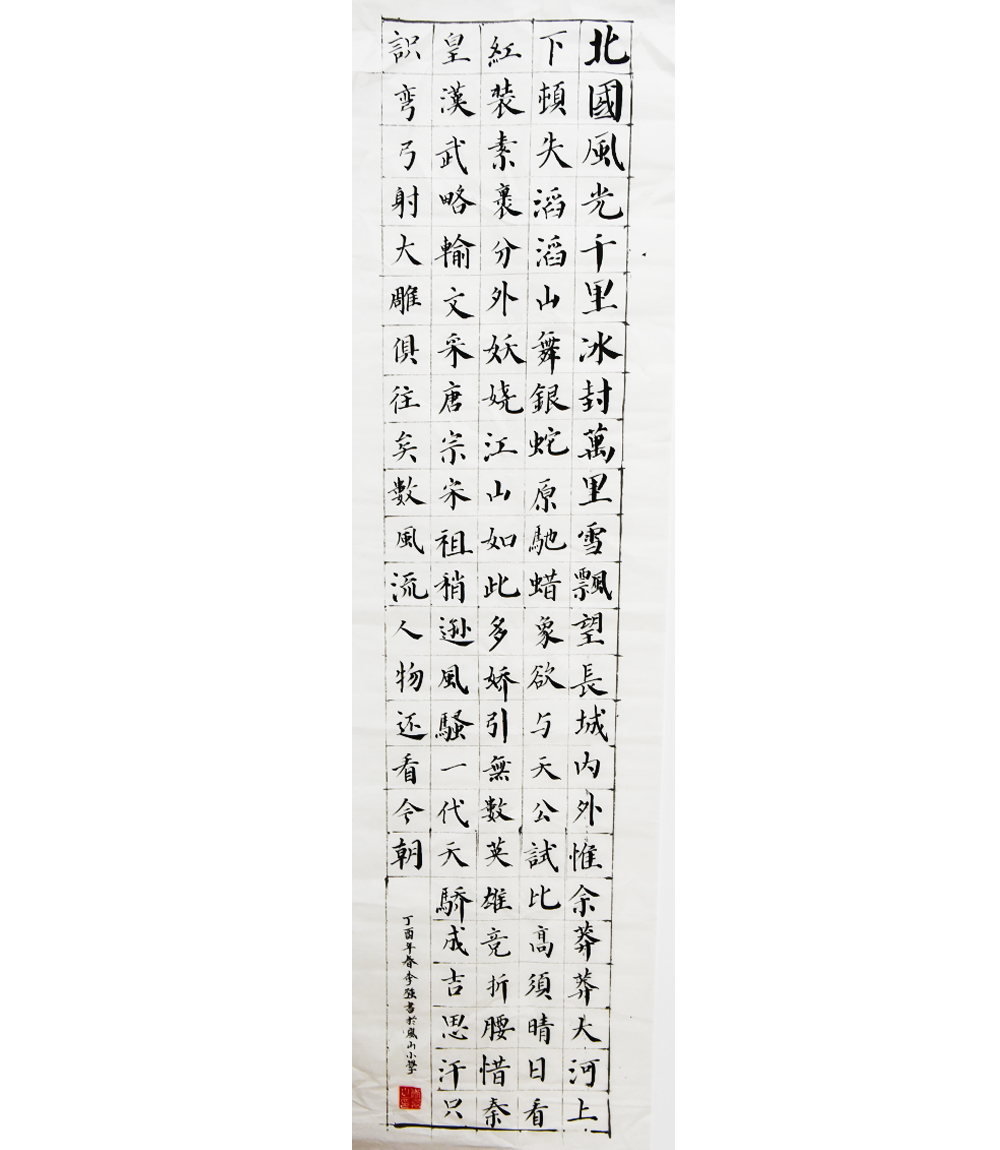 北國風光千里冰封萬里雪飄望長城内外惟余莽莽大河上
下頓失滔滔山舞銀蛇原馳蜡象欲与天公試比高須晴日看
紅裝素裹分外妖嬈江山如此多嬌引無數英雄竞折腰惜秦
皇漢武略輸文采唐宗宋祖稍逊風騷一代天驕成吉思汗只
識弯弓射大雕俱往矣數風流人物还看今朝
丁酉年春李强書於鳳山小學